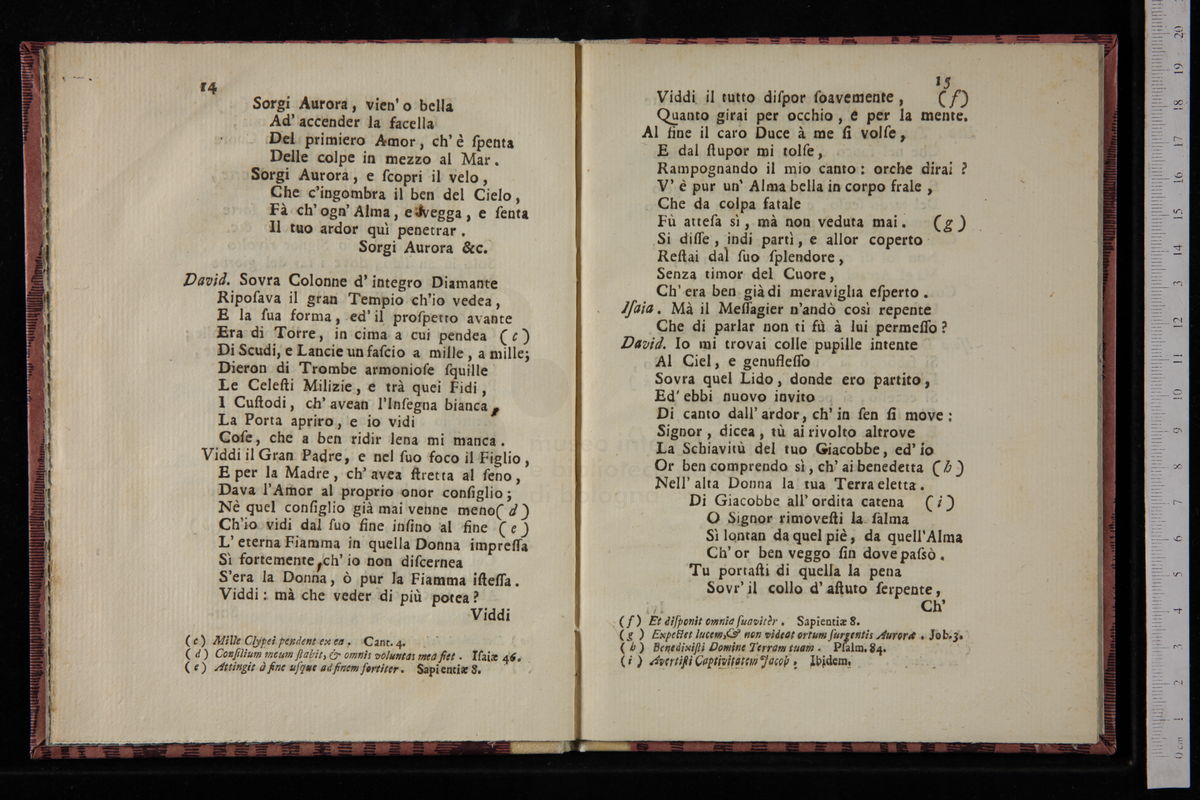 14
Sorgi Aurora, vien' o bella
Ad' accender la facella
Del primiero Amor, ch' è ſpenta
Delle colpe in mezzo al Mar.
Sorgi Aurora, e ſcopri il velo,
Che c'ingombra il ben del Cielo,
Fà ch' ogn' Alma, e vegga, e ſenta
Il tuo ardor quì penetrar.
Sorgi Aurora &c.
David. Sovra Colonne d' integro Diamante
Ripoſava il gran Tempio ch'io vedea,
E la ſua forma, ed' il proſpetto avante
Era di Torre, in cima a cui pendea (c)
Di Scudi, e Lancie un faſcio a mille, a mille;
Dieron di Trombe armonioſe ſquille
Le Celeſti Milizie, e trà quei Fidi,
I Cuſtodi, ch' avean l'Inſegna bianca,
La Porta apriro, e io vidi
Coſe, che a ben ridir lena mi manca.
Viddi il Gran Padre, e nel ſuo foco il Figlio,
E per la Madre, ch' avea ſtretta al ſeno,
Dava l'Amor al proprio onor conſiglio;
Nè quel conſiglio già mai venne meno (d)
Ch'io vidi dal ſuo fine inſino al fine (e)
L' eterna Fiamma in quella Donna impreſſa
Sì fortemente, ch' io non diſcernea
S'era la Donna, ò pur la Fiamma iſteſſa.
Viddi: mà che veder di più potea?
Viddi
(c) Mille Clypei pendent ex ea. Cant. 4.
(d) Conſilium meum ſtabit, & omnis voluntas mea fiet. Iſaiæ 46.
(e) Attingit à fine uſque ad finem fortiter. Sapientiæ 8.
15
Viddi il tutto diſpor ſoavemente, (f)
Quanto girai per occhio, e per la mente.
Al fine il caro Duce à me ſi volſe,
E dal ſtupor mi tolſe,
Rampognando il mio canto: orche dirai?
V' è pur un' Alma bella in corpo frale,
Che da colpa fatale
Fù atteſa sì, mà non veduta mai. (g)
Si diſſe, indi partì, e allor coperto
Reſtai dal ſuo ſplendore,
Senza timor del Cuore,
Ch' era ben già di meraviglia eſperto.
Iſaia. Mà il Meſſagier n'andò così repente
Che di parlar non ti fù à lui permeſſo?
David. Io mi trovai colle pupille intente
Al Ciel, e genufleſſo
Sovra quel Lido, donde ero partito,
Ed' ebbi nuovo invito
Di canto dall' ardor, ch' in ſen ſi move:
Signor, dicea, tù ai rivolto altrove
La Schiavitù del tuo Giacobbe, ed' io
Or ben comprendo sì, ch' ai benedetta (h)
Nell' alta Donna la tua Terra eletta.
Di Giacobbe all' ordita catena (i)
O Signor rimoveſti la ſalma
Sì lontan da quel piè, da quell'Alma
Ch' or ben veggo ſin dove paſsò.
Tu portaſti di quella la pena
Sovr' il collo d' aſtuto ſerpente,
Ch'
(f) Et diſponit omnia ſuavitèr. Sapientiæ 8.
(g) Expectet lucem, & non videat ortum ſurgentis Auroræ. Job. 3.
(h) Benedixiſti Domine Terram tuam. Pſalm. 84.
(i) Avertiſti Captivitatem Jacob. Ibidem.